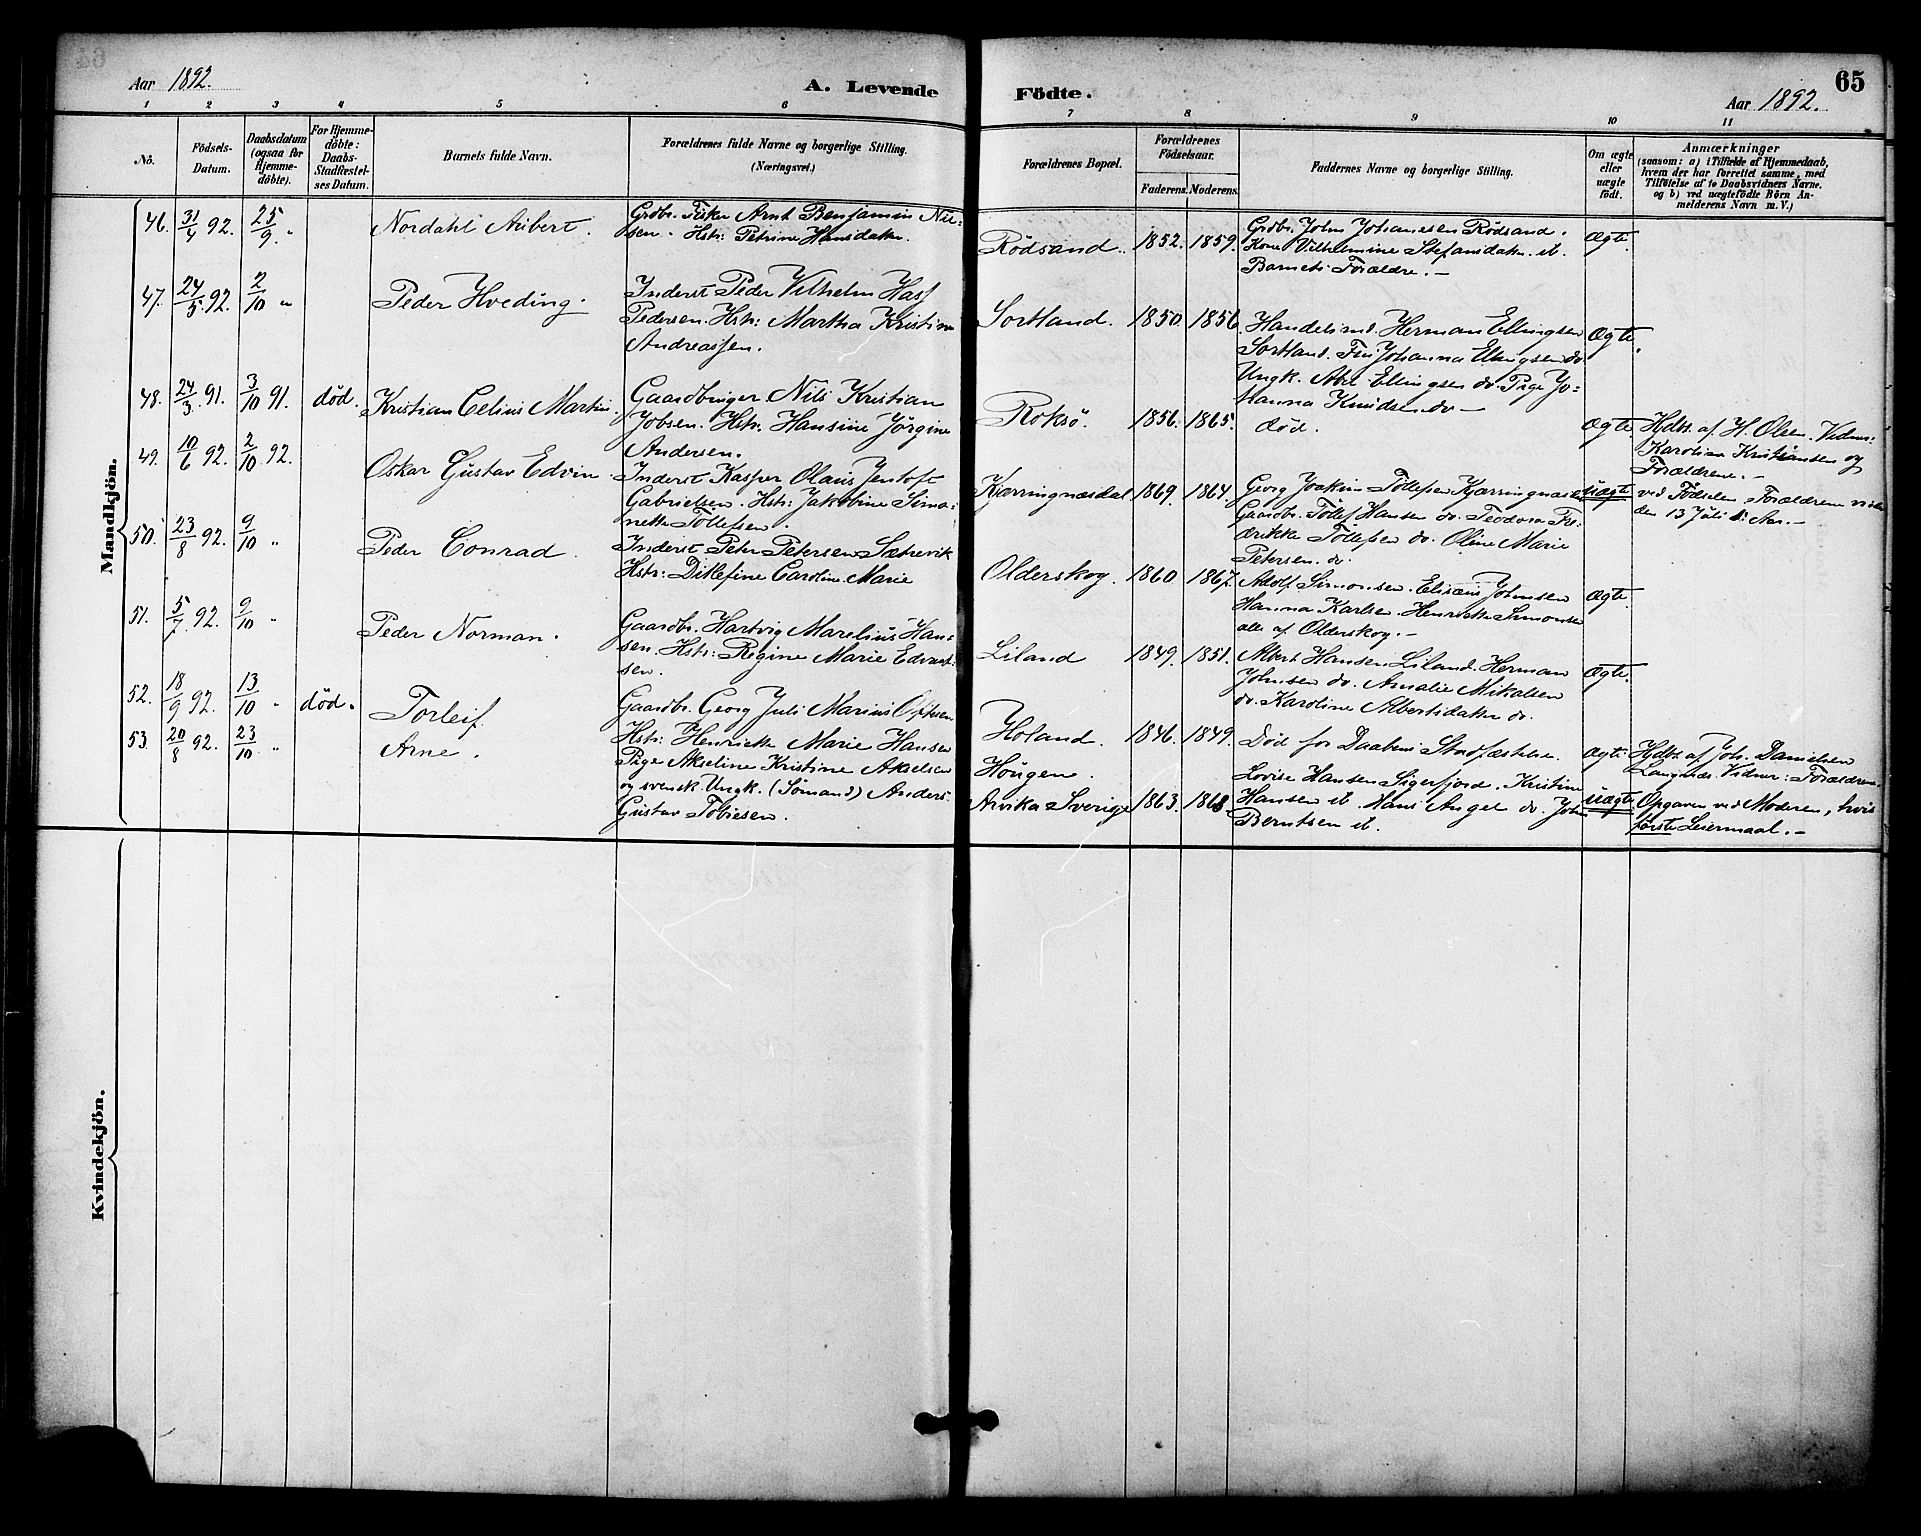 Aar 1892.
A. Levende
Födte.
65
Aar 1892.
1 2 3 4 5 6 7 8 9 10 11
No.
Födsels-
Datum.
Daabsdatum
(ogsaa for
Hjemme-
döbte).
For Hjemme-
döbte:
Daabs-
Stadfæstel-
ses Datum.
Barnets fulde Navn.
Forældrenes fulde Navne og borgerlige Stilling.
(Næringsvei.)
Forældrenes Bopæl.
Forældrenes
Födselsaar.
Faderens. Moderens.
Faddernes Navne og borgerlige Stilling.
Om ægte
eller
uægte
födt.
Anmærkninger
(saasom: a) i Tilfælde af Hjemmedaab,
hvem der har forrettet samme, med
Tilföielse af to Daabsvidners Navne,
og b) ved uægtefödte Börn An-
melderens Navn m. V.)
Mandkjön.
46. 31/4 92. 25/9 "
Nordahl Aubert.
Grdbr. Fisker Arnt Benjamin Nil-
sen. Hstr: Petrine Hansdatter.
Rödsand. 1852. 1859.
Grdbr. John Johannesen Rödsand.
Kone Vilhelmine Stefansdatter. ib.
Barnets Forældre. —
Ægte.
47. 24/5 92. 2/10 "
Peder Hveding.
Inderst Peder Vilhelm Hass
Pedersen. Hstr: Martha Kristine
Andreassen.
Sortland. 1850. 1856.
Handelsmd. Herman Ellingsen
Sortland. Fru Johanna Ellingsen do
Ungk. Abel Ellingsen do. Pige Jo-
hanna Knudsen do —
Ægte.
48. 24/3 91. 3/10 91. död.
Kristian Celius Martin.
Gaardbruger Nils Kristian
Jobsen. Hstr. Hansine Jörgine
Andersen.
Roksö. 1856. 1865.
död.
Ægte.
Hdbt. af H. Olsen. Vidner:
Karolina Kristiansen og
Forældrene. —
49. 10/6 92. 2/10 92.
Oskar Gustav Edvin.
Inderst Kasper Olaus Jentoft
Gabrielsen. Hstr: Jakobine Simo-
nette Tollefsen.
Kjærringnæsdal 1869. 1864.
Georg Joakim Tollefsen Kjærringnæsdal
Gaardbr. Tollef Hansen do. Teodora Fre-
drikke Tollefsen do. Oline Marie
Petersen do.
uægte
ved Födselen. Forældrene viede
den 13 Juli s. Aar. —
50. 23/8 92. 9/10 "
Peder Conrad.
Inderst Peter Petersen Sætrevik
Hstr: Ditlefine Caroline Marie
Olderskog. 1860 1867.
Adolf Simonsen. Elisæus Johnsen
Hanna Karlsen. Henriette Simonsen
alle af Olderskog. —
Ægte.
51. 5/7 92. 9/10 "
Peder Norman.
Gaardbr. Hartvig Marelius Han-
sen. Hstr: Regine Marie Edvard-
sen.
Liland 1849. 1851.
Albert Hansen Liland. Herman
Johnsen do. Amalie Mikalsen
do. Karoline Albertsdatter do.
Ægte.
52. 18/9 92. 13/10 " död.
Torleif.
Gaardbr. Georg Juli Marius
Hstr: Henriette Marie Hansen
Holand. 1846. 1849.
Död for Daabens Stadfæstelse.
Ægte.
Hjdbt. af Joh. Danielsen
Langnæs. Vidner: Forældrene.
53. 20/8 92. 23/10 "
Arne.
Pige Akseline Kristine Akselsen
og svensk Ungk. (Sömand) Anders
Gustav Tobiesen.
Hougen.
Arvika Sverige 1863. 1868
Lovise Hansen Sigerfjord. Kristine
Hansen ib. Hans Angel do. John
Berntsen ib.
uægte
Opgaven ved Moderen, hvis
förste Leiermaal. —
Kvindekjön.